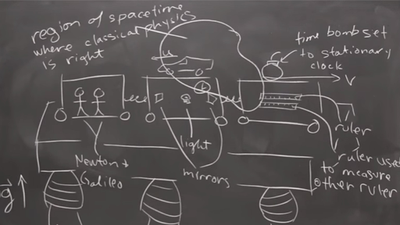 region of spacetime
where classical physics
is right
time bomb set
to stationary
clock
v
ruler
ruler used
to measure
other ruler
light
mirrors
Newton +
Galileo
g